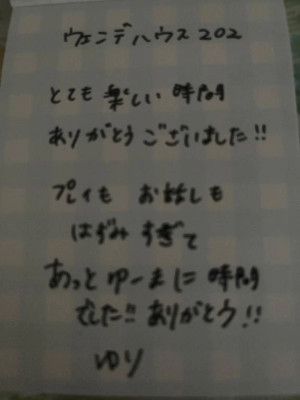 ウェンデハウス202
とても楽しい時間
ありがとうございました!!
プレイも お話しも
はずみすぎて
あっとゆーまに時間
でした!! ありがとう!!
ゆり